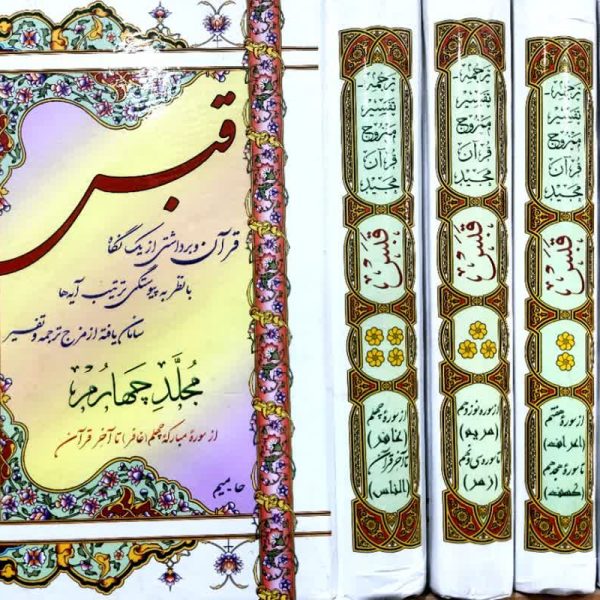 قبس
قرآن و برداشتی از یک نگاه
با نظر به پیوستگی ترتیب آیه‌ها
سامان یافته از مزج ترجمه و تفسیر
مجلد چهارم
از سورهٔ مبارکهٔ چهلم (غافر) تا آخر قرآن
حا. میم
ترجمۀ-
تفسیر
مزوج
قرآن
مجید
قبس
از سورهٔ چهلم
(غافر)
تا آخر قرآن
(الناس)
ترجمۀ-
تفسیر
مزوج
قرآن
مجید
قبس
از سورهٔ نوزدهم
(مریم)
تا سورهٔ سی و نهم
(زمر)
ترجمۀ-
تفسیر
مزوج
قرآن
مجید
قبس
از سورهٔ هفتم
(اعراف)
تا سورهٔ هجدهم
(کهف)